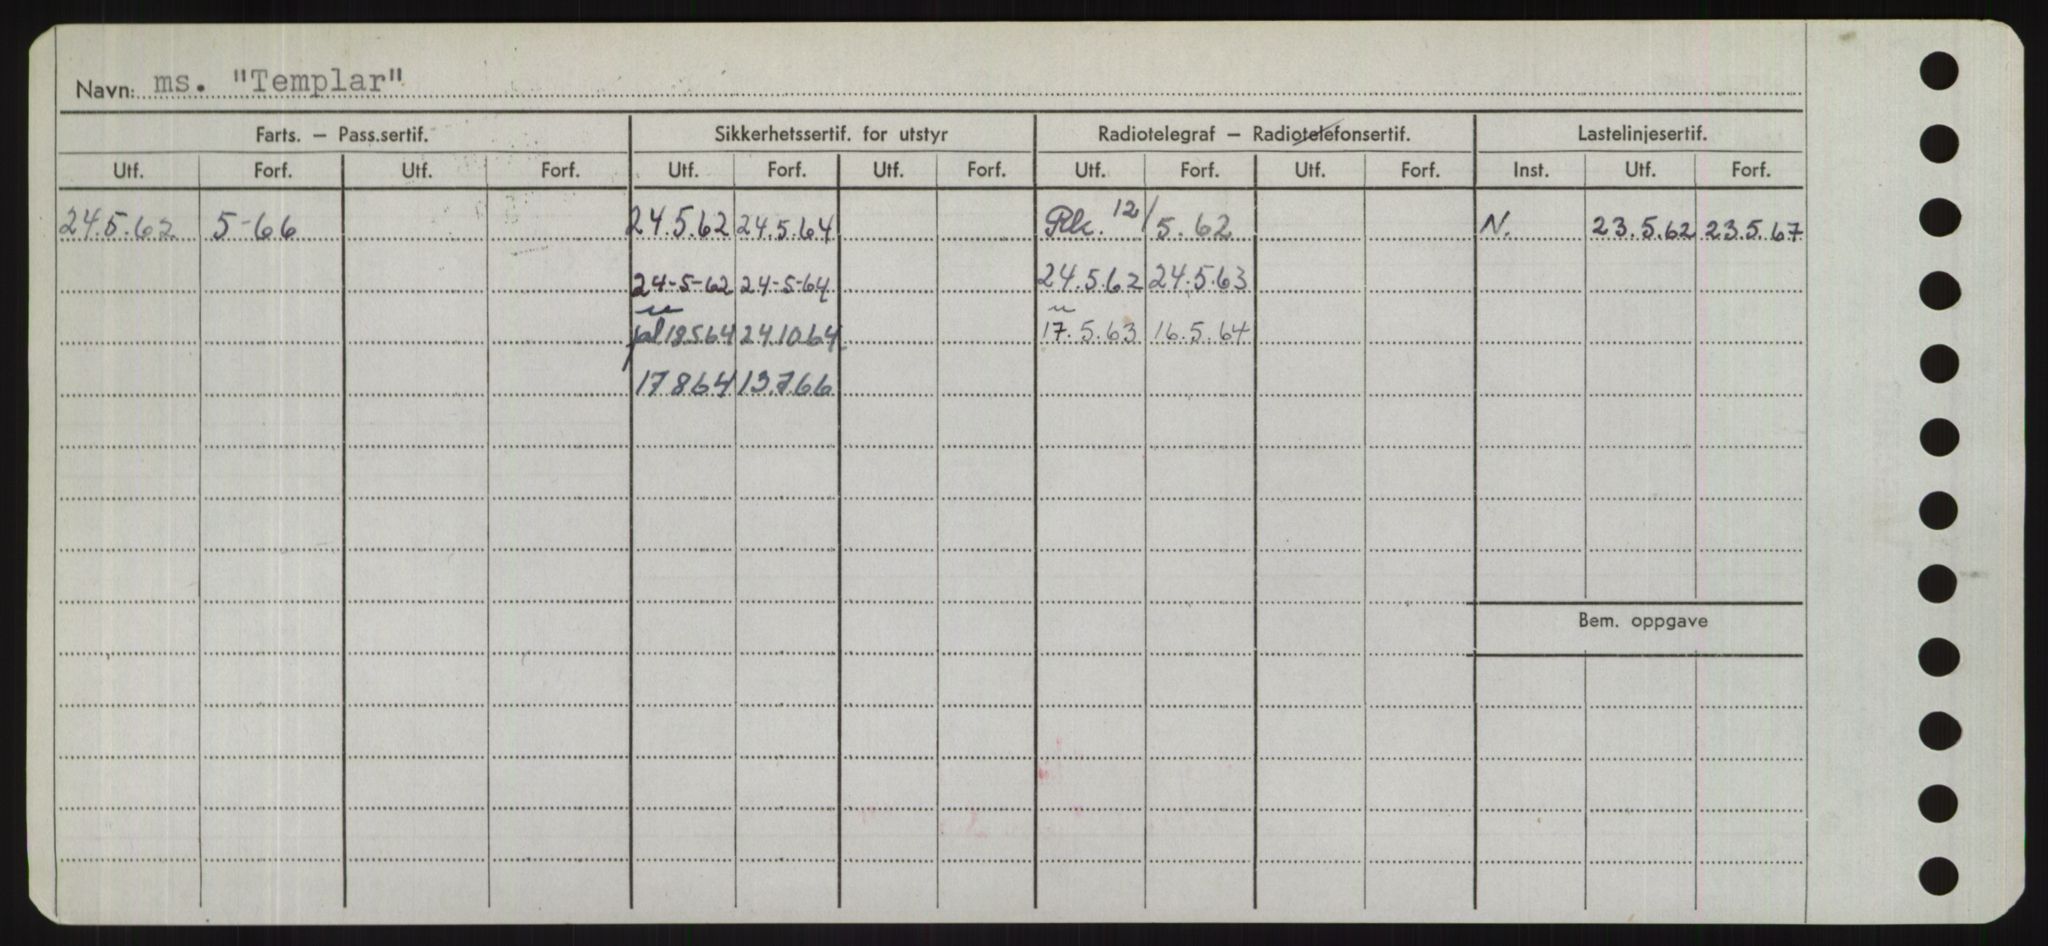 Navn: ms. "Templar"
Farts. – Pass.sertif. Sikkerhetssertif. for utstyr Radiotelegraf – Radiotelefonsertif. Lastelinjesertif.
Utf. Forf. Utf. Forf. Utf. Forf. Utf. Forf. Utf. Forf. Utf. Forf. Inst. Utf. Forf.
24.5.62 5-66 24.5.62 24.5.64 12/5.62 N. 23.5.62 23.5.67
24-5-62 24-5-64 24.5.62 24.5.63
18564 24.10.64 17.5.63 16.5.64
17864 13.7.66
Bem. oppgave